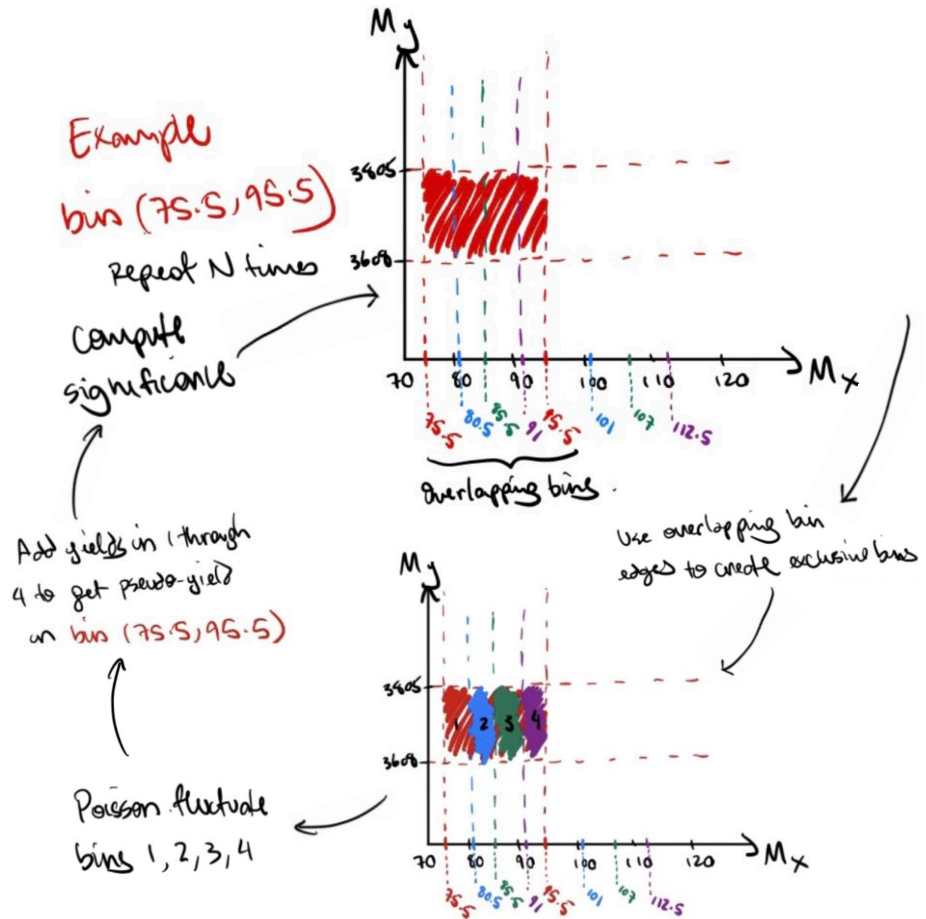 My
Example
bin (75.5, 95.5)
Repeat N times
Compute
significance
3805
3608
70 80 90 100 110 120 Mx
75.5 80.5 85.5 91 95.5 101 107 112.5
overlapping bins.
Use overlapping bin
edges to create exclusive bins
Add yields in 1 through
4 to get pseudo-yield
in bin (75.5, 95.5)
My
3805
1 2 3 4
3608
Poisson fluctuate
bins 1, 2, 3, 4
70 80 90 100 110 120 Mx
75.5 80.5 85.5 91 95.5 101 107 112.5